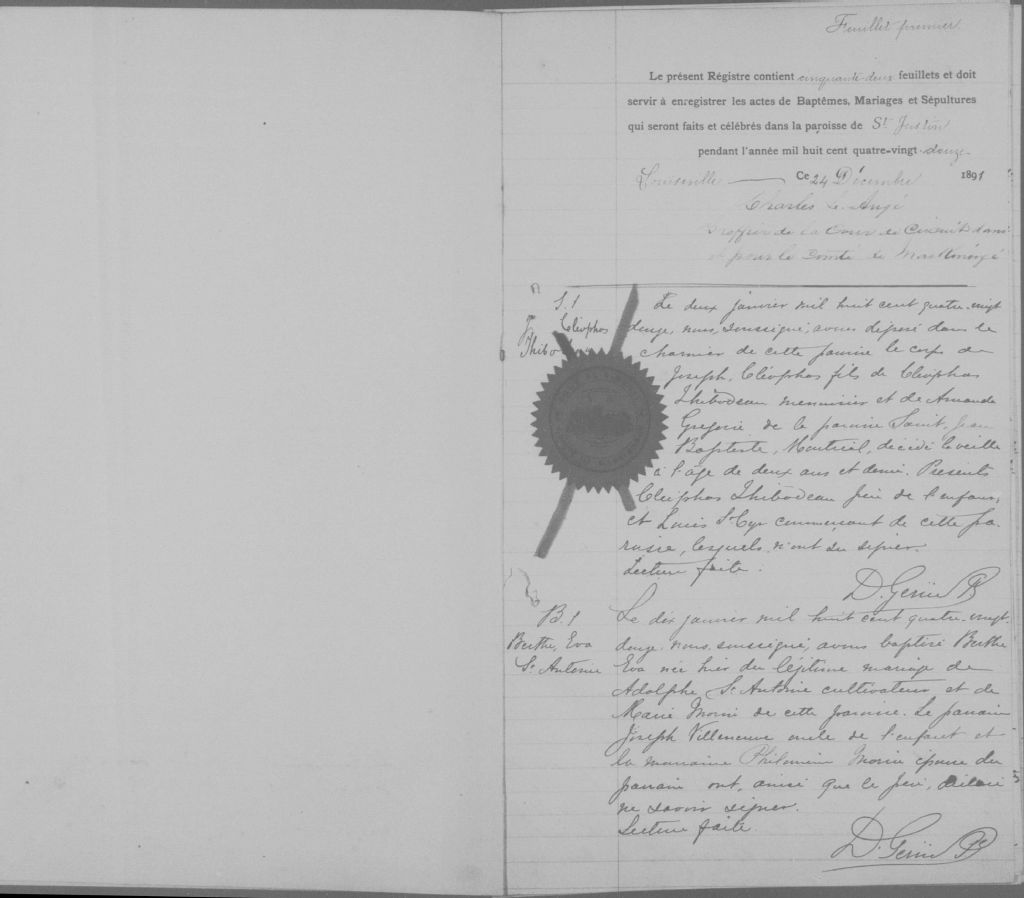 Feuillet premier
Le présent Régistre contient cinquante-deux feuillets et doit
servir à enregistrer les actes de Baptêmes, Mariages et Sépultures
qui seront faits et célébrés dans la paroisse de St Justin
pendant l'année mil huit cent quatre-vingt-douze
Louiseville — Ce 24 Décembre 1891
Charles Le
Greffier de la Cour de Circuit dans
et pour le Comté de Maskinongé
S.1
J. Cléophas
Thibodeau
Le deux janvier mil huit cent quatre-vingt
douze, nous, soussigné, avons déposé dans le
charnier de cette paroisse le corps de
Joseph, Cléophas fils de Cléophas
Thibodeau menuisier et de Amanda
de la paroisse Saint-Jean
Baptiste, Montréal, décédé la veille
à l'âge de deux ans et demi. Présents
Cléophas Thibodeau père de l'enfant,
et Louis St Cyr commerçant de cette pa-
roisse, lesquels n'ont su signer.
Lecture faite.
D. Gérin Ptre
B.1
Berthe, Eva
St Antoine
Le dix janvier mil huit cent quatre-vingt-
douze, nous, soussigné, avons baptisé Berthe
Eva née hier du légitime mariage de
Adolphe St Antoine cultivateur et de
Marie Morin de cette paroisse. Le parrain
Joseph Villeneuve oncle de l'enfant et
la marraine Morin épouse du
parrain ont, ainsi que le père, déclaré
ne savoir signer.
Lecture faite.
D. Gérin Ptre